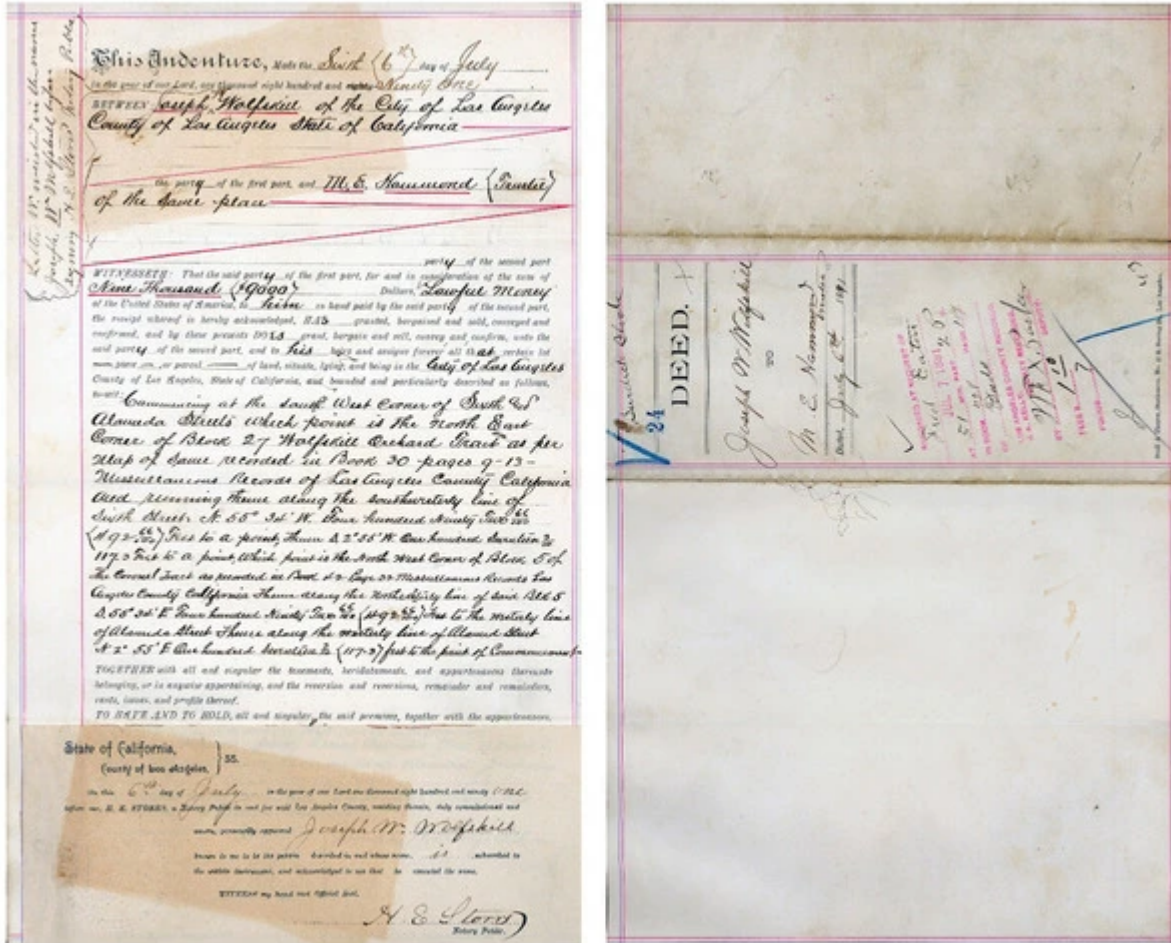 This Indenture, Made the Sixth (6th) day of July
in the year of our Lord, one thousand eight hundred and eighty Ninety One
BETWEEN Joseph W Wolfskill of the City of Los Angeles
County of Los Angeles State of California
the party of the first part, and M. E. Hammond (Trustee)
of the same place
party of the second part
WITNESSETH: That the said party of the first part, for and in consideration of the sum of
Nine Thousand ($9000) Dollars, Lawful Money
of the United States of America, to him in hand paid by the said party of the second part,
the receipt whereof is hereby acknowledged, HAS granted, bargained and sold, conveyed and
confirmed, and by these presents DOES grant, bargain and sell, convey and confirm, unto the
said party of the second part, and to his heirs and assigns forever all that certain lot
piece or parcel of land, situate, lying, and being in the City of Los Angeles
County of Los Angeles, State of California, and bounded and particularly described as follows,
to-wit:
Commencing at the South West Corner of Sixth and
Alameda Streets which point is the North East
Corner of Block 27 Wolfskill Orchard Tract as per
Map of same recorded in Book 30 pages 9-13-
Miscellaneous Records of Los Angeles County California
and running thence along the southwesterly line of
Sixth Street N. 55° 34' W. Four hundred Ninety Two 66/100
(492 66/100) Feet to a point, Thence S 2° 55' W One hundred Seventeen
117.3 Feet to a point, Which point is the North West Corner of Block 5 of
the Coronel Tract as recorded in Book Page Miscellaneous Records Los
Angeles County California Thence along the Northerly line of said Blk 5
S. 55° 34' E Four hundred Ninety Two 66/100 (492 66/100) Feet to the westerly line
of Alameda Street Thence along the westerly line of Alameda Street
N 2° 55' E One hundred Seventeen (117.3) feet to the point of Commencement
TOGETHER with all and singular the tenements, hereditaments, and appurtenances thereunto
belonging, or in anywise appertaining, and the reversion and reversions, remainder and remainders,
rents, issues, and profits thereof.
TO HAVE AND TO HOLD, all and singular, the said premises, together with the appurtenances,
State of California,
County of Los Angeles, } SS.
On this 6th day of July in the year of our Lord one thousand eight hundred and ninety one
before me, H. E. STORRS, a Notary Public in and for said Los Angeles County, residing therein, duly commissioned and
sworn, personally appeared Joseph W. Wolfskill
known to me to be the person described in and whose name is subscribed to
the within instrument, and acknowledged to me that he executed the same.
WITNESS my hand and Official Seal.
H. E. Storrs
Notary Public.
24
DEED.
Joseph W Wolfskill
TO
M. E. Hammond
Trustee
Dated July 6th 1891
RECORDED AT REQUEST OF
Fred Eaton